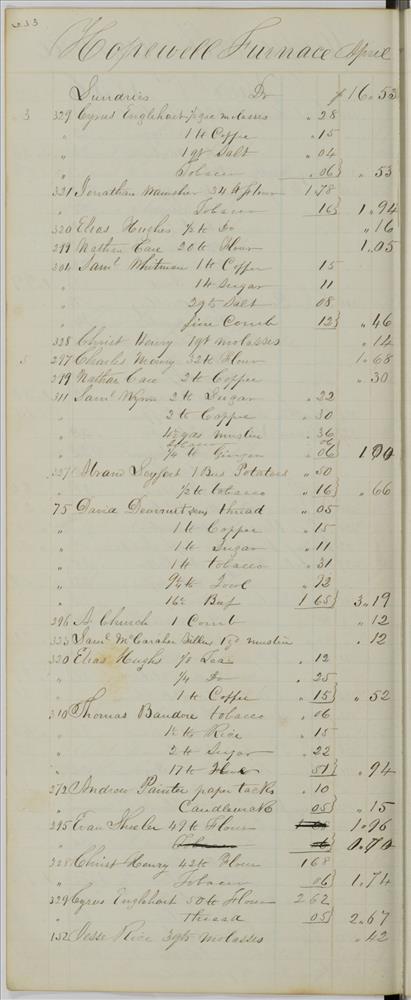 233
Hopewell Furnace April
Sundries Dr $16.53
3 329 Cyrus Englehart ½ ga molasses .28
" 1 lb Coffee .15
" 1 qt Salt .04
" Tobacco .06} .53
321 Jonathan 34 lb flour 1.78
" Tobacco 16} 1.94
320 Elias Hughes ½ lb Do .16
299 Nathan Care 20 lb Flour 1.05
304 Saml Whitman 1 lb Coffee 15
" 1 lb Sugar 11
" 2 qts Salt 08
" fine Comb 12} .46
328 Christ Henry 1 qt molasses .14
5 297 Charles 32 lb Flour 1.68
299 Nathan Care 2 lb Coffee .30
311 Saml Wynn 2 lb Sugar .22
" 2 lb Coffee .30
" muslin .36
" ¼ lb Ginger .06} 1.00
327 Seyfert 1 Bus Potatoes .50
" ½ lb tobacco .16} .66
75 David thread .05
" 1 lb Coffee .15
" 1 lb Sugar .11
" 1 lb tobacco .31
" .92
" 1 65} 3.19
296 A. Church 1 Comb .12
333 Saml McCaraher 1 yd muslin .12
320 Elias Hughs ⅛ Tea .12
" ¼ Do .25
" 1 lb Coffee .15} .52
310 Thomas Baudore tobacco .06
" Rice .15
" 2 lb Sugar .22
" 17 lb 51} .94
272 Andrew Painter paper tacks .10
" Candlewick 05} .15
295 Evan Sheeler 49 lb Flour 1.96
" 0.70
328 Christ Henry 42 lb Flour 168
" Tobacco 06} 1.74
329 Cyrus Englehart 50 lb Flour 262
" thread 05} 2.67
152 Jesse Rice 3 qts molasses .42